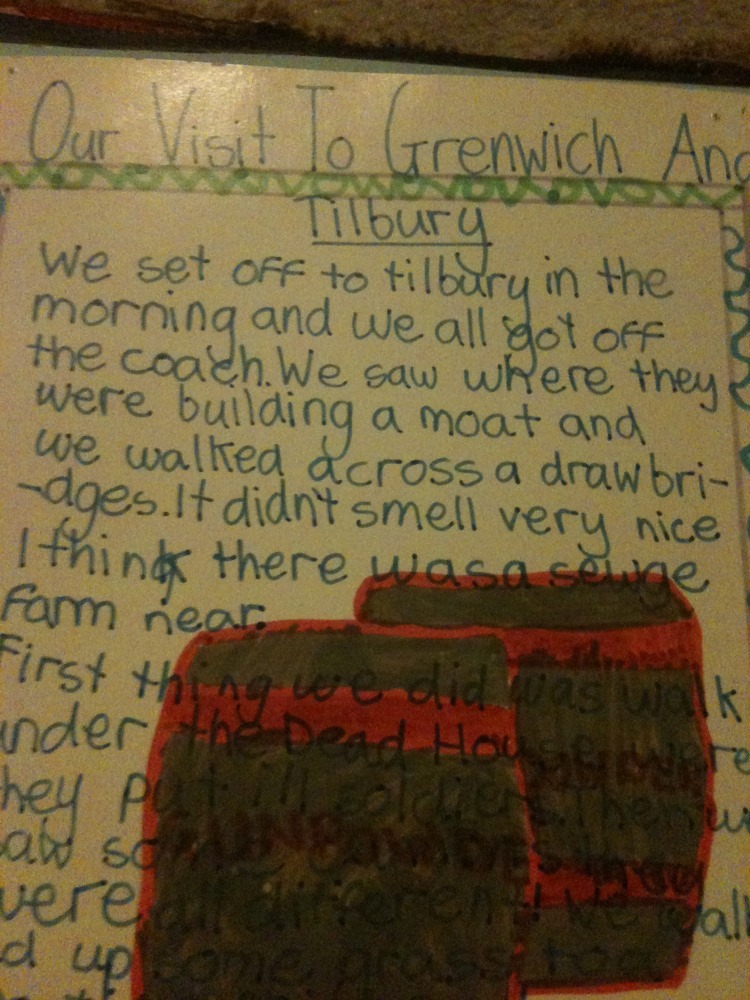 Our Visit To Grenwich And
Tilbury
We set off to tilbury in the
morning and we all got off
the coach. We saw where they
were building a moat and
we walked across a drawbri-
-dges. It didn't smell very nice
I think there was a sewge
farm near.
First thing we did was walk
under the Dead House were
they put ill soldiers. Then w
aw so
were all different! We wall
d up some grass too
GUNPOWDER